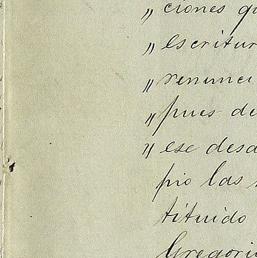 „ciones q
„escritur
„renunci
„pues de
„ese desd
pio las
tituido
Gregori